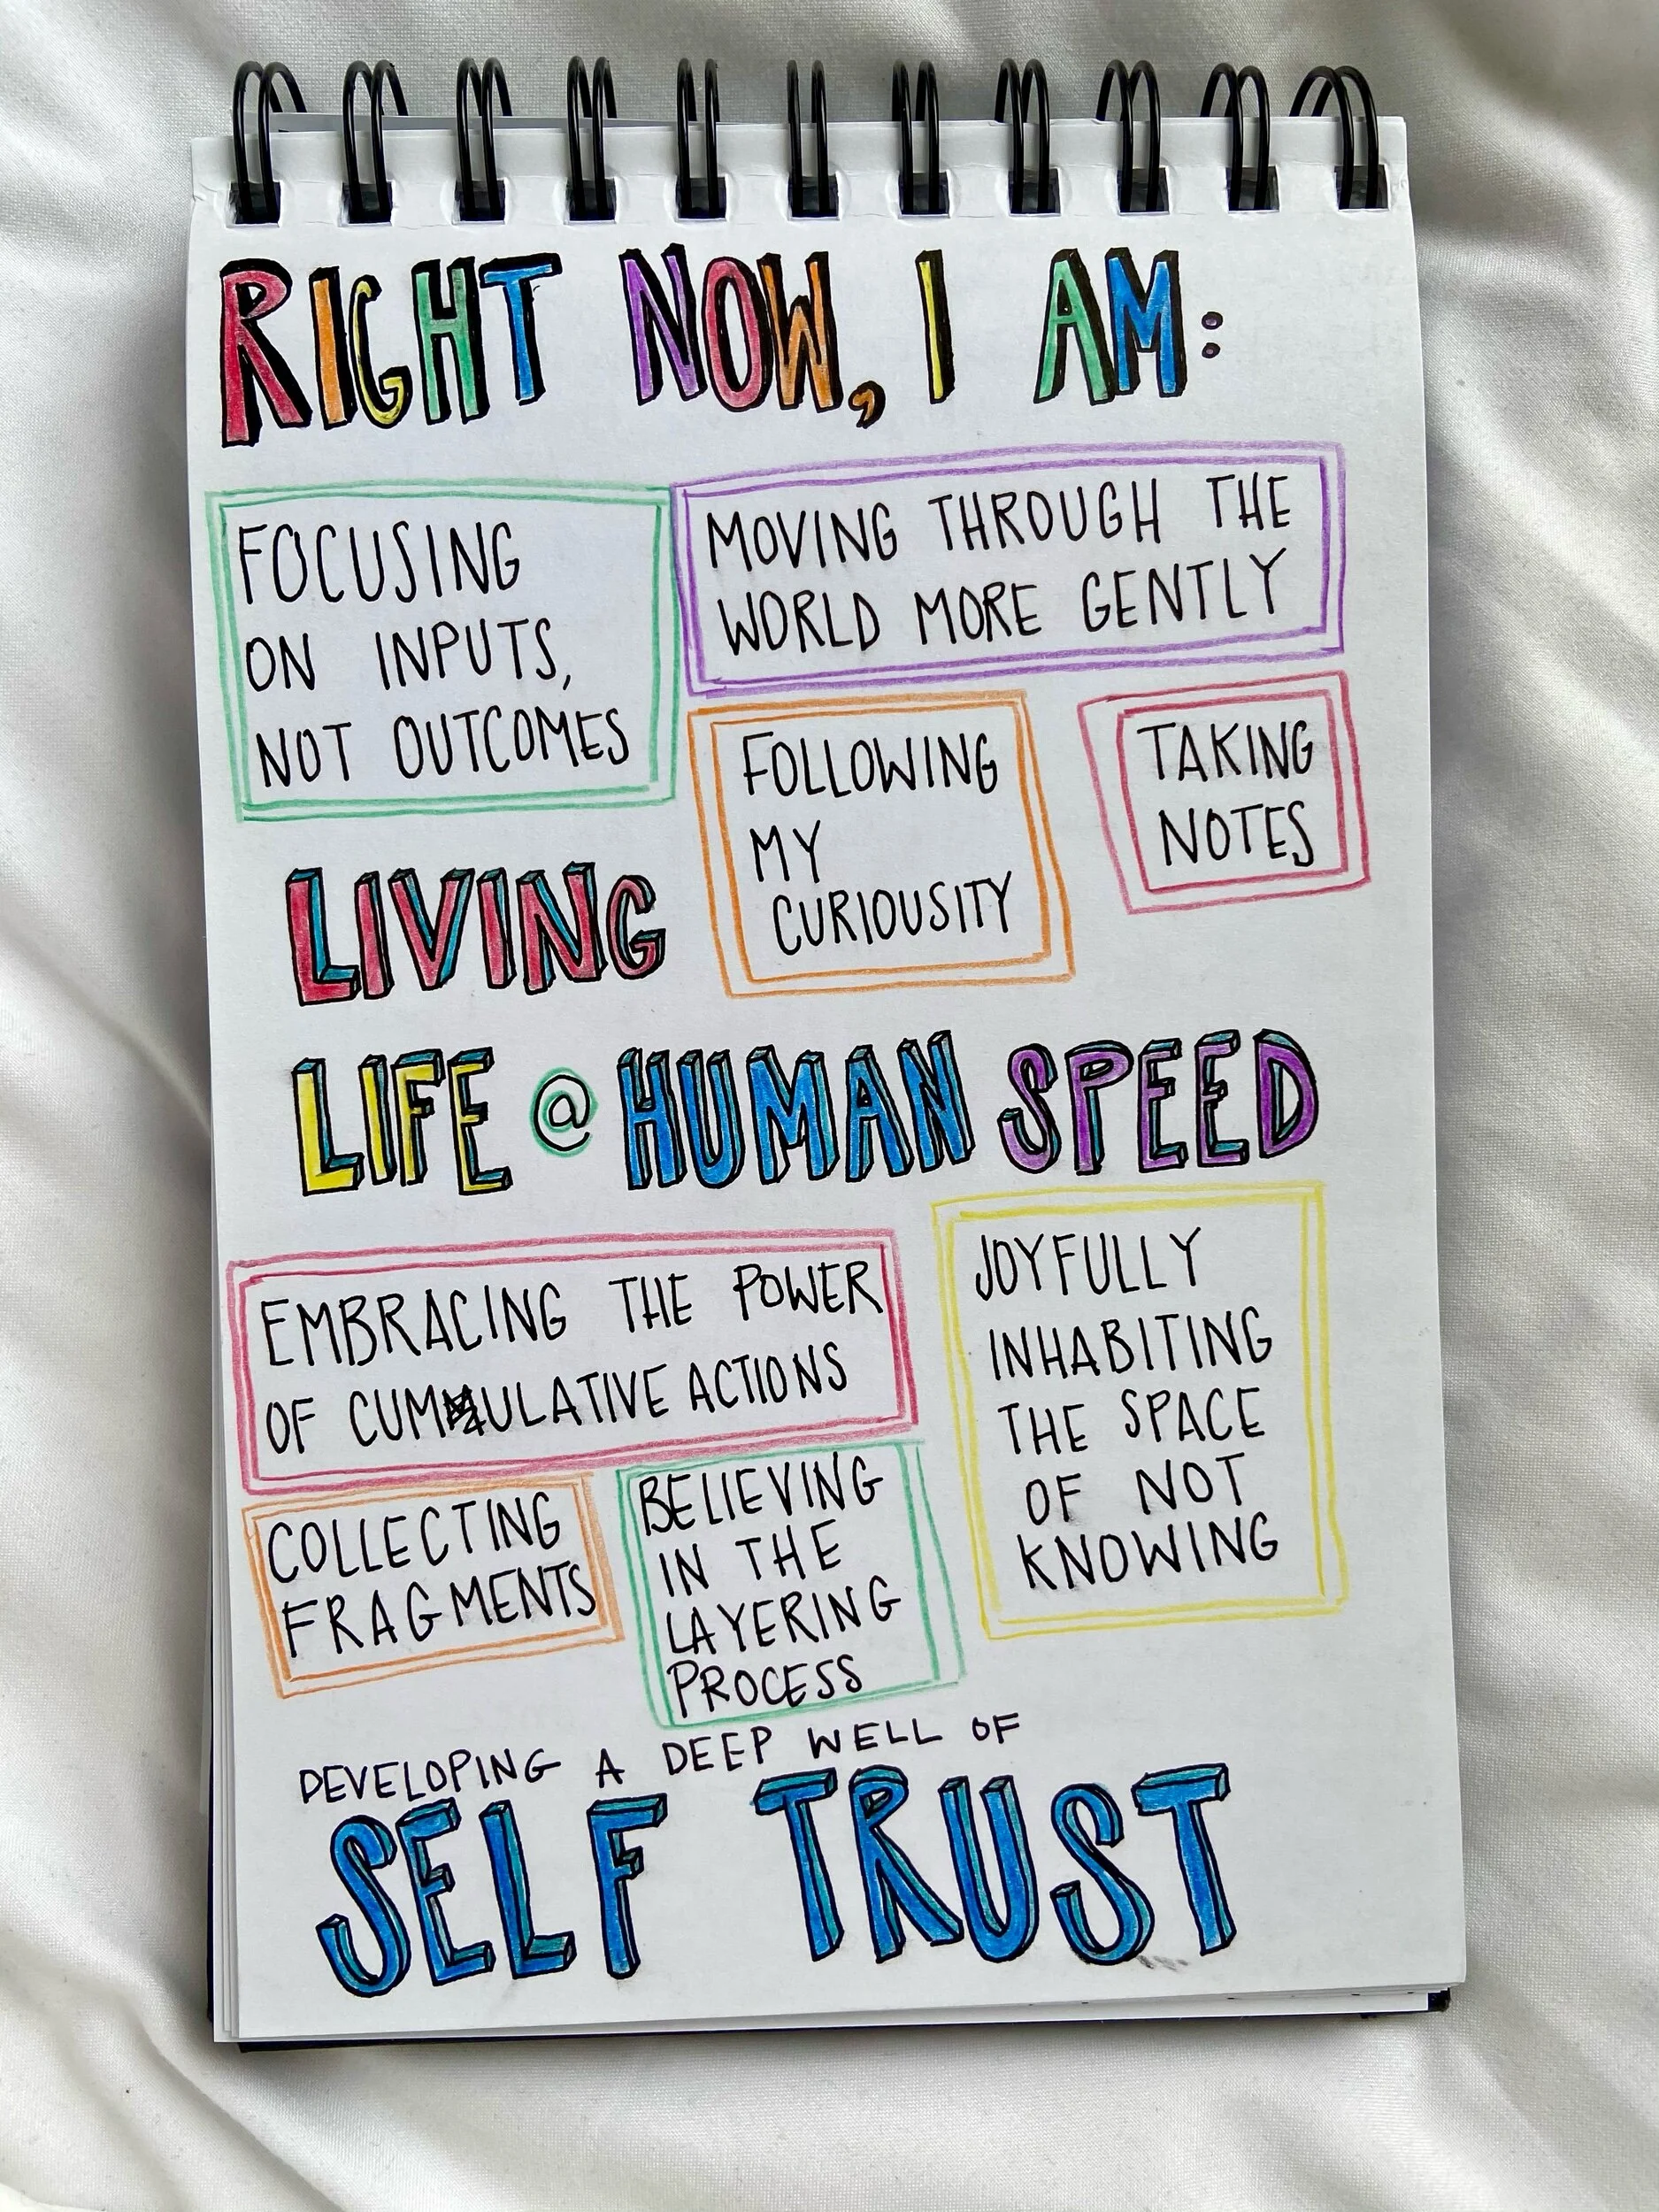 RIGHT NOW, I AM:
FOCUSING
ON INPUTS,
NOT OUTCOMES
MOVING THROUGH THE
WORLD MORE GENTLY
FOLLOWING
MY
CURIOUSITY
TAKING
NOTES
LIVING
LIFE @ HUMAN SPEED
EMBRACING THE POWER
OF CUMULATIVE ACTIONS
JOYFULLY
INHABITING
THE SPACE
OF NOT
KNOWING
COLLECTING
FRAGMENTS
BELIEVING
IN THE
LAYERING
PROCESS
DEVELOPING A DEEP WELL OF
SELF TRUST